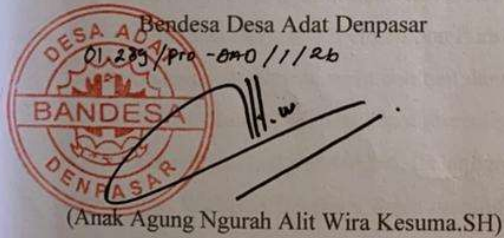 Bendesa Desa Adat Denpasar
01.239/Pro-DAD/1/26
DESA ADAT
BANDESA
DENPASAR
(Anak Agung Ngurah Alit Wira Kesuma.SH)